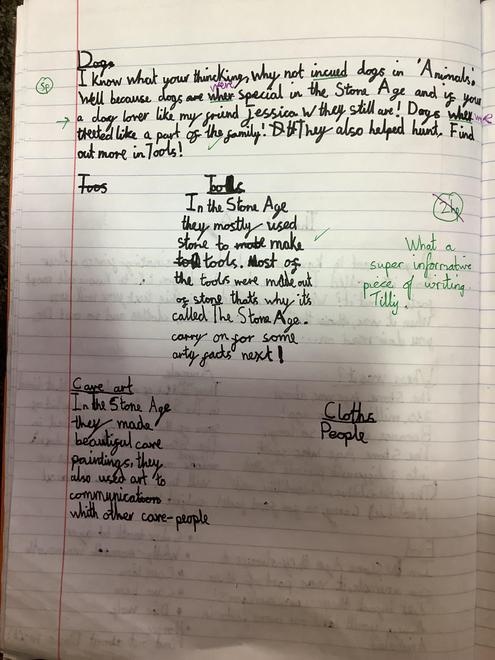 Dogs
I know what your thincking, why not incued dogs in 'Animals'.
were
Well because dogs are wher special in the Stone Age and if your
sp
a dog lover like my frind Jessica W they still are! Dogs wher
were
treted like a part of the family! They also helped hunt. Find
out more in Tools!
Toos
Tools
In the Stone Age
they mostly used
stone to make
tools. Most of
the tools were made out
of stone that's why it's
called The Stone Age.
carry on for some
arty facts next!
What a
super informative
piece of writing
Tilly.
Cave art
In the Stone Age
they made
beautiful cave
paintings, they
also used art to
communication
whith other cave-people
Cloths
People